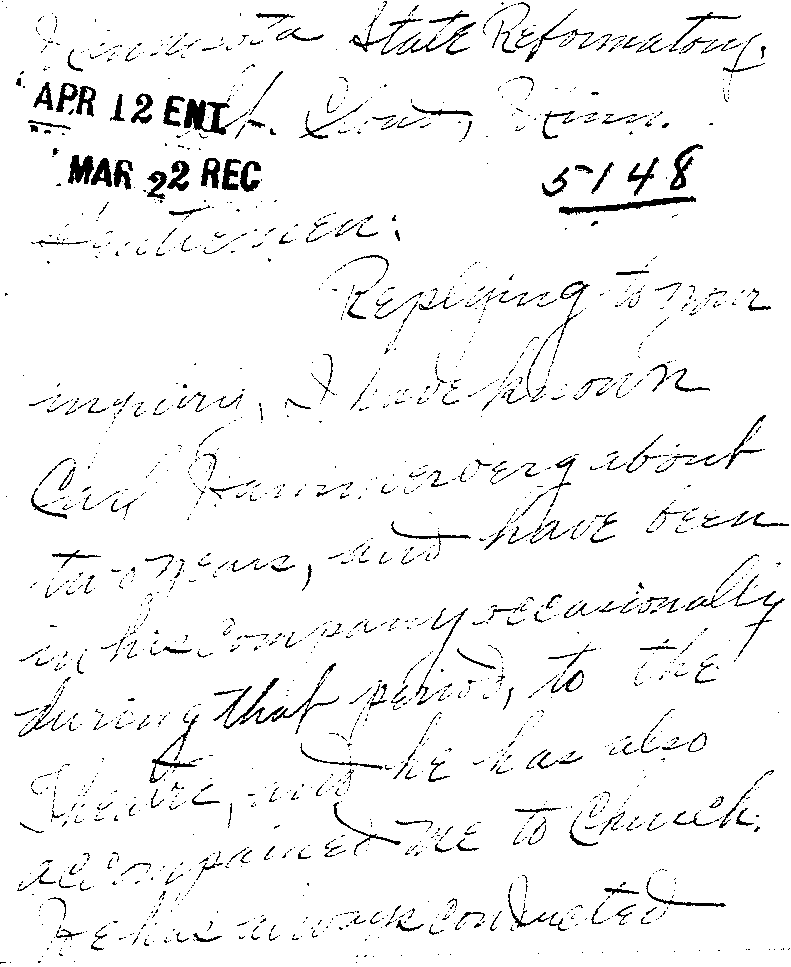 Minnesota State Reformatory.
APR 12 ENT
St. Cloud, Minn.
MAR 22 REC
5148
Gentlemen:
Replying to your
inquiry, I have known
Carl Hammerberg about
two years, and have been
in his company occasionally
during that period, to the
Theatre, and he has also
accompained me to Church.
He has always conducted